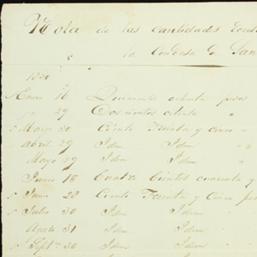 Nota de las cantidades
la Condesa de San
Enero 16 Quinientos ochenta pesos
" 29 Doscientos ochenta "
Marzo 30 Ciento Treinta y cinco "
Abril 29 Idem Idem "
Mayo 29 Idem Idem
Junio 18 Cuatro Cientos cuarenta y
Junio 28 Ciento Treinta y Cinco pe
Julio 30 Idem Idem
Agosto 31 Idem Idem "
Septe 30 Idem Idem "